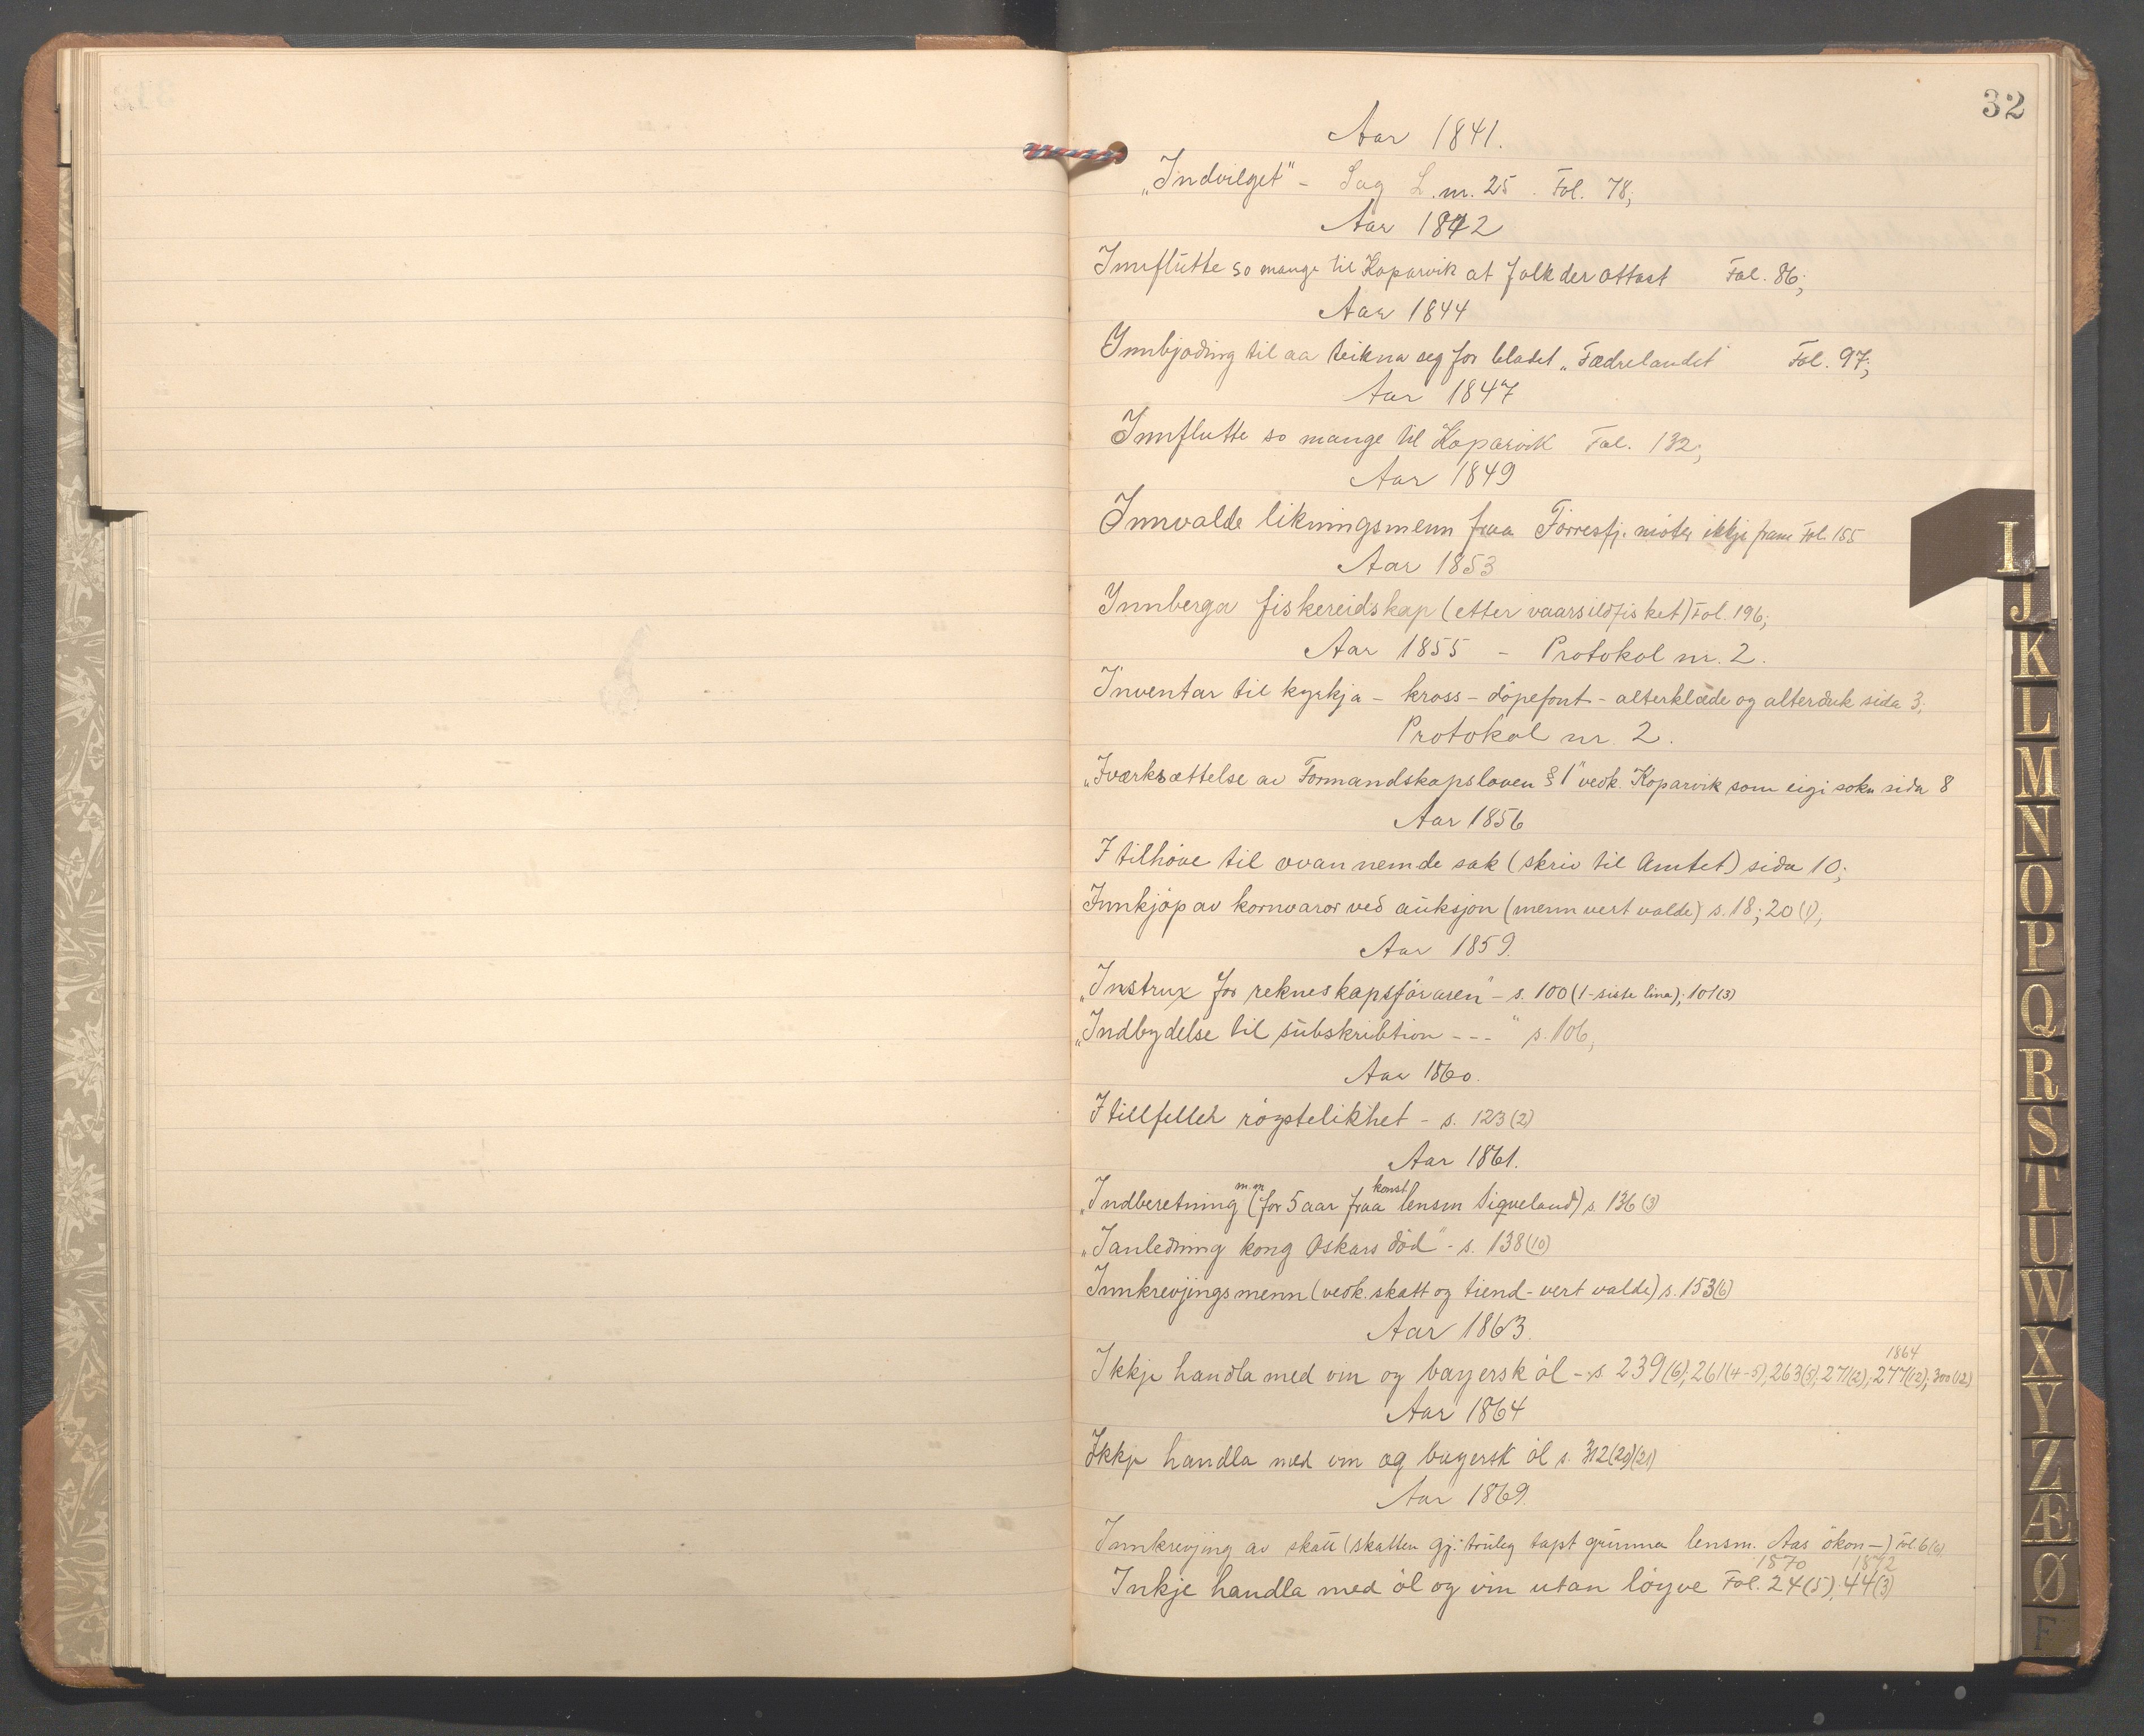 32
Aar 1841.
„Indvilget" - Sag L. nr. 25. Fol. 78;
Aar 1842
Innflutte so mange til Koparvik at folk der ottast Fol. 86;
Aar 1844
Innbjoding til aa teikna seg for bladet „Fædrelandet" Fol. 97;
Aar 1847
Innflutte so mange til Koparvik Fol. 132;
Aar 1849
Innvalde likningsmenn fraa Førresfj. møter ikkje fram Fol. 155
Aar 1853
Innberga fiskereidskap (etter vaarsildfisket) Fol. 196;
Aar 1855 - Protokol nr. 2.
Inventar til kyrkja - kross - döpefont - alterklæde og alterduk sida 3;
Protokol nr. 2.
„Iværksættelse av Formandskapsloven § 1" vedk. Koparvik som eigi sokn sida 8
Aar 1856
I tilhöve til ovannemde sak (skriv til Amtet) sida 10;
Innkjöp av kornvaror ved auksjon (menn vert valde) s. 18; 20 (1),
Aar 1859.
„Instrux for rekneskapsföraren" - s. 100 (1-siste lina); 101(3)
„Indbydelse til subskribtion - - - " s. 106,
Aar 1860.
I tillfelleh röystelikhet - s. 123 (2)
Aar 1861.
„Indberetning m.m (for 5 aar fraa konst lensm Siqveland) s. 136 (3)
„I anledning kong Oskars död" - s. 138 (10)
Innkrevjingsmenn (vedk. skatt og tiend - vert valde) s. 153(6)
Aar 1863.
1864
Ikkje handla med vin og bayersk öl - s. 239 (6); 261(4-5), 263(5), 271(2); 277(12); 300(12)
Aar 1864
Ikkje handla med vin og bayersk öl s. 312(20)(21)
Aar 1869.
Innkrevjing av skatt (skatten gj. truleg tapt grunna lensm. Aas ökon-) Fol. 6(6)
1870 1872
Inkje handla med öl og vin utan löyve Fol. 24(5), 44(3)
I
J
K
L
M
N
O
P
Q
R
S
T
U
W
X
Y
Z
Æ
Ø
F